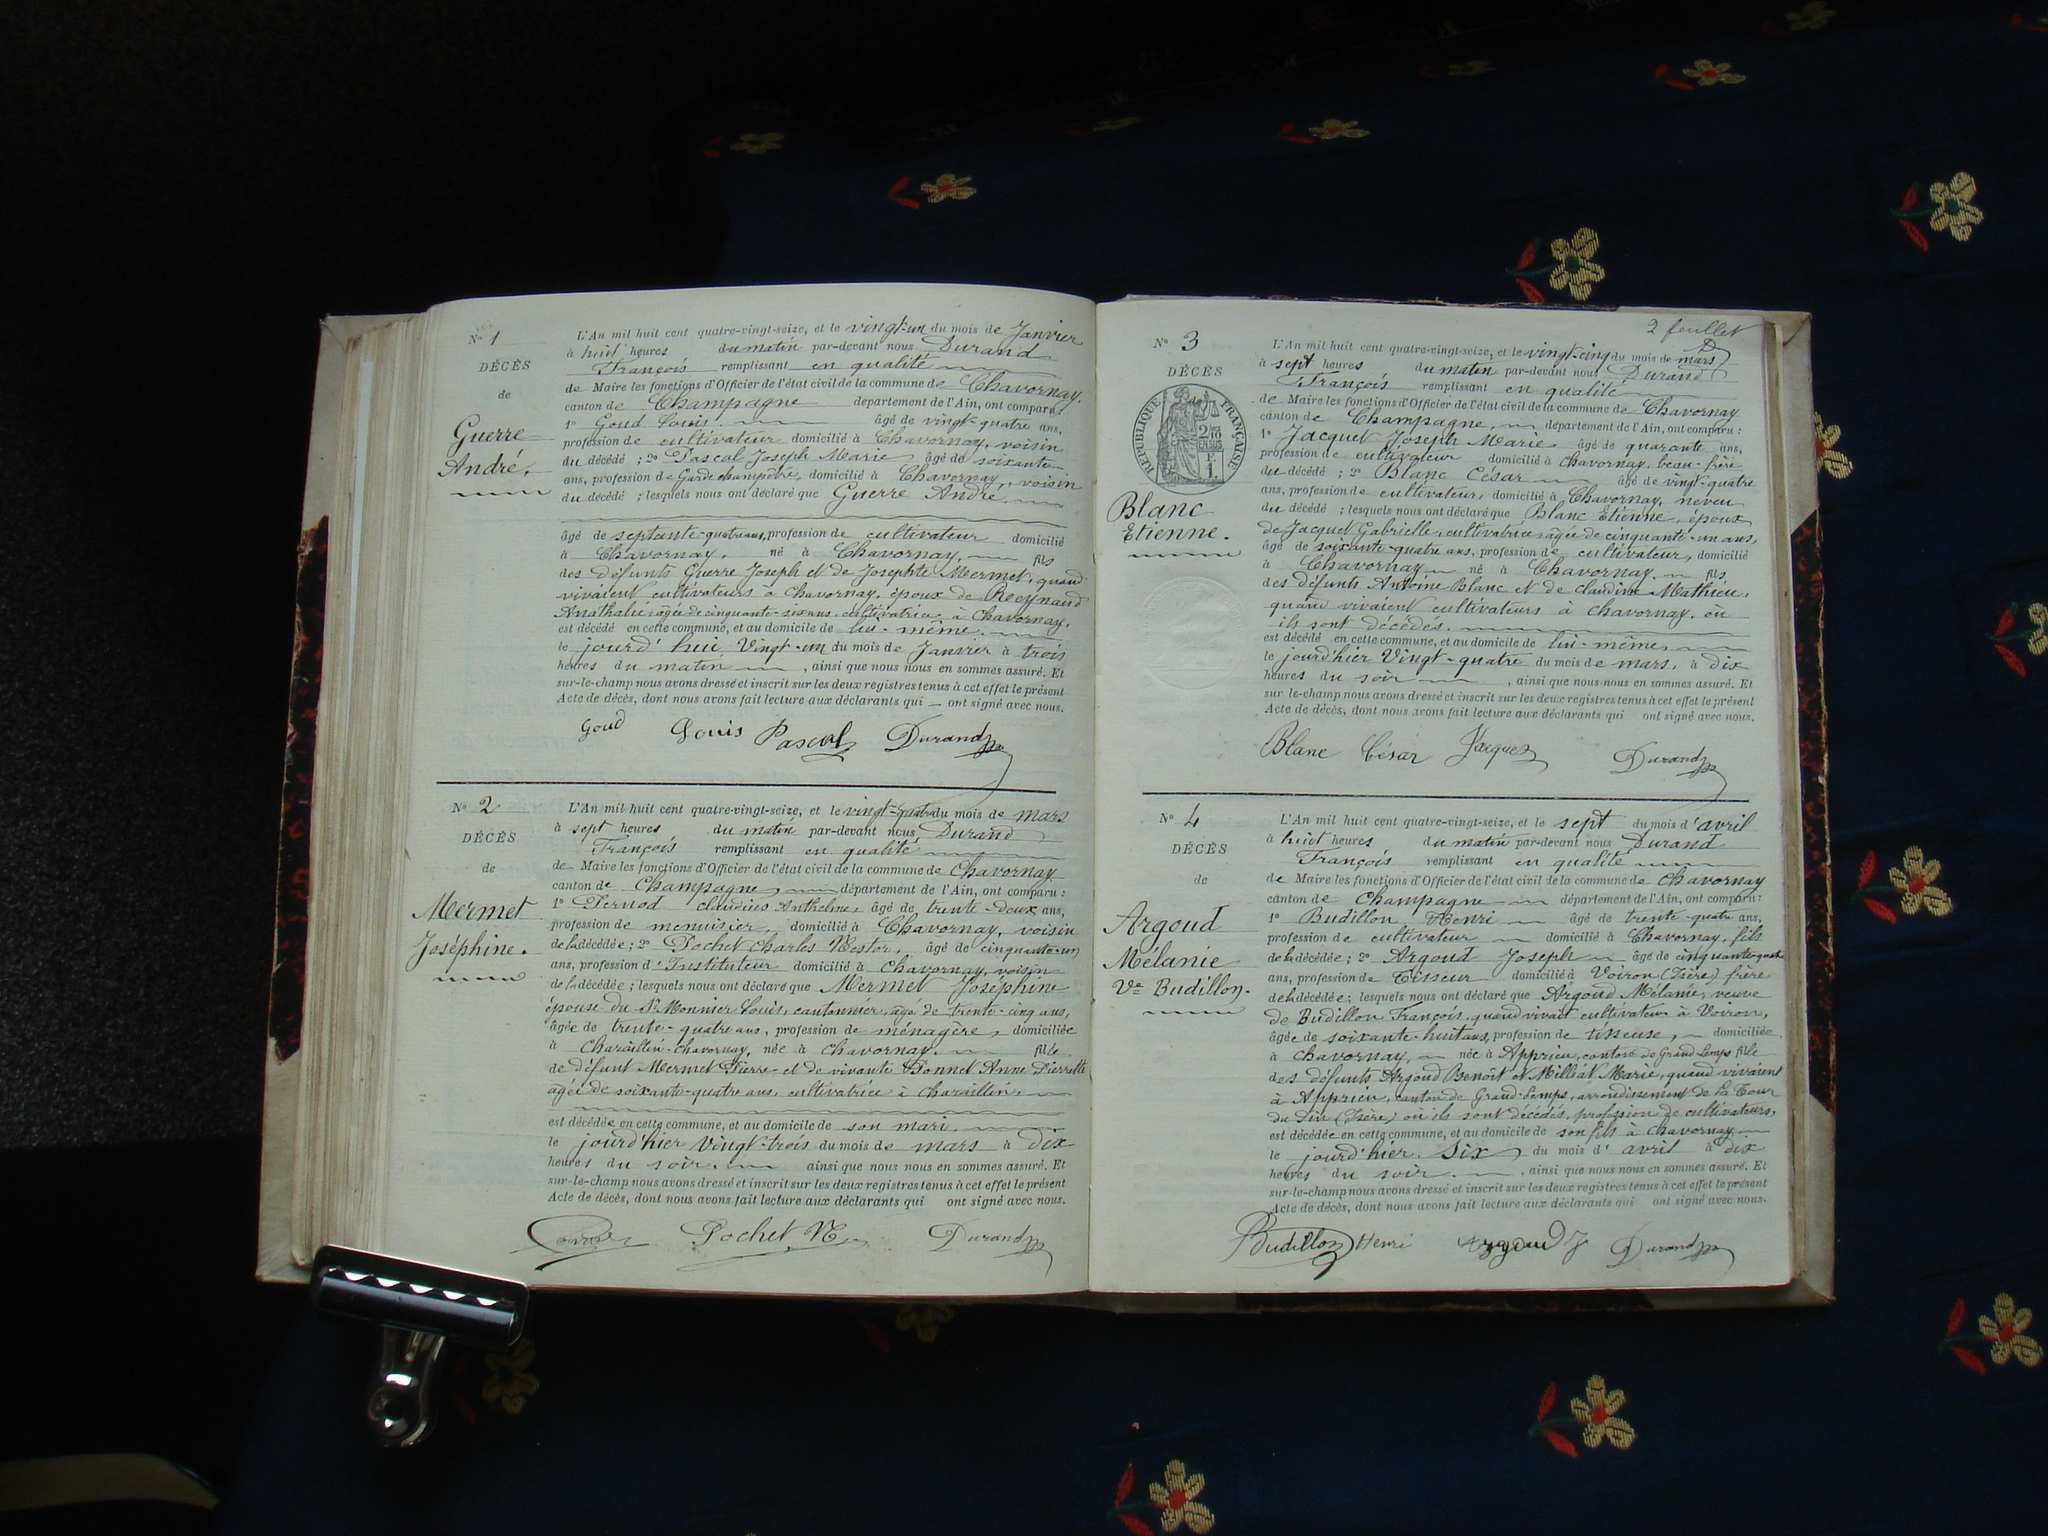 Nº 1
DÉCÈS
de
Guerre
André.
L'An mil huit cent quatre-vingt-seize, et le vingt-un du mois de Janvier
à huit heures du matin par-devant nous Durand
François remplissant en qualité
de Maire les fonctions d'Officier de l'état civil de la commune de Chavornay.
canton de Champagne département de l'Ain, ont comparu
1º Goud Louis. âgé de vingt-quatre ans,
profession de cultivateur domicilié à Chavornay, voisin
du décédé ; 2º Pascal Joseph Marie, âgé de soixante
ans, profession de Garde champêtre, domicilié à Chavornay, voisin
du décédé ; lesquels nous ont déclaré que Guerre André,
âgé de septante-quatre ans, profession de cultivateur domicilié
à Chavornay. né à Chavornay, fils
des défunts Guerre Joseph et de Josephte Mermet, quand
vivaient cultivateurs à Chavornay, époux de Reynaud
Anathalie âgée de cinquante-six ans, cultivatrice à Chavornay.
est décédé en cette commune, et au domicile de lui-même.
le jourd'hui Vingt-un du mois de Janvier à trois
heures du matin, ainsi que nous nous en sommes assuré. Et
sur-le-champ nous avons dressé et inscrit sur les deux registres tenus à cet effet le présent
Acte de décès, dont nous avons fait lecture aux déclarants qui ont signé avec nous.
Goud Louis Pascal Durand
Nº 2
DÉCÈS
de
Mermet
Joséphine.
L'An mil huit cent quatre-vingt-seize, et le vingt-quatre du mois de mars
à sept heures du matin par-devant nous Durand
François remplissant en qualité
de Maire les fonctions d'Officier de l'état civil de la commune de Chavornay
canton de Champagne, département de l'Ain, ont comparu :
1º Pernod Claudius Anthelme, âgé de trente-deux ans,
profession de menuisier, domicilié à Chavornay, voisin
de la décédée ; 2º Pochet Charles Nestor, âgé de cinquante-un
ans, profession d'Instituteur domicilié à Chavornay, voisin
de la décédée ; lesquels nous ont déclaré que Mermet Joséphine
épouse du Sr Monnier Louis, cantonnier, âgé de trente-cinq ans,
âgée de trente-quatre ans, profession de ménagère, domiciliée
à Charaillin-Chavornay, née à Chavornay. fille
de défunt Mermet Pierre et de vivante Bonnet Anne Pierrette
agée de soixante-quatre ans, cultivatrice à Charaillin.
est décédée en cette commune, et au domicile de son mari.
le jourd'hier vingt-trois du mois de mars à dix
heures du soir. ainsi que nous nous en sommes assuré. Et
sur-le-champ nous avons dressé et inscrit sur les deux registres tenus à cet effet le présent
Acte de décès, dont nous avons fait lecture aux déclarants qui ont signé avec nous.
Pochet N Durand
2 feuillet
Nº 3
DÉCÈS
RÉPUBLIQUE FRANÇAISE
Blanc
Etienne.
L'An mil huit cent quatre-vingt-seize, et le vingt-cinq du mois de mars
à sept heures du matin par-devant nous Durand
François remplissant en qualité
de Maire les fonctions d'Officier de l'état civil de la commune de Chavornay
canton de Champagne, département de l'Ain, ont comparu :
1º Jacquet Joseph Marie, âgé de quarante ans,
profession de cultivateur domicilié à Chavornay, beau-frère
du décédé ; 2º Blanc César âgé de vingt-quatre
ans, profession de cultivateur, domicilié à Chavornay, neveu
du décédé ; lesquels nous ont déclaré que Blanc Etienne, époux
de Jacquet Gabrielle, cultivatrice âgée de cinquante-un ans,
âgé de soixante-quatre ans, profession de cultivateur, domicilié
à Chavornay né à Chavornay. fils
des défunts Antoine Blanc et de Claudine Mathieu,
quand vivaient cultivateurs à Chavornay, où
ils sont décédés.
est décédé en cette commune, et au domicile de lui-même.
le jourd'hier Vingt-quatre du mois de mars, à dix
heures du soir, ainsi que nous nous en sommes assuré. Et
sur-le-champ nous avons dressé et inscrit sur les deux registres tenus à cet effet le présent
Acte de décès, dont nous avons fait lecture aux déclarants qui ont signé avec nous.
Blanc César Jacquet Durand
Nº 4
DÉCÈS
de
Argoud
Mélanie
Ve Budillon.
L'An mil huit cent quatre-vingt-seize, et le sept du mois d'avril
à huit heures du matin par-devant nous Durand
François remplissant en qualité
de Maire les fonctions d'Officier de l'état civil de la commune de Chavornay
canton de Champagne département de l'Ain, ont comparu :
1º Budillon Henri âgé de trente-quatre ans,
profession de cultivateur domicilié à Chavornay, fils
de la décédée ; 2º Argoud Joseph âgé de cinquante-quatre
ans, profession de Tisseur domicilié à Voiron (Isère) frère
de la décédée ; lesquels nous ont déclaré que Argoud Mélanie, veuve
de Budillon François, quand vivait cultivateur à Voiron,
âgée de soixante-huit ans, profession de tisseuse, domiciliée
à Chavornay, née à Apprieu, canton de Grand-Lemps fille
des défunts Argoud Benoît et Milliat Marie, quand vivaient
à Apprieu, canton de Grand-Lemps, arrondissement de la Tour
du Pin (Isère) où ils sont décédés, profession de cultivateurs,
est décédée en cette commune, et au domicile de son fils à Chavornay
le jourd'hier six du mois d'avril à dix
heures du soir. ainsi que nous nous en sommes assuré. Et
sur-le-champ nous avons dressé et inscrit sur les deux registres tenus à cet effet le présent
Acte de décès, dont nous avons fait lecture aux déclarants qui ont signé avec nous.
Budillon Henri Argoud J Durand